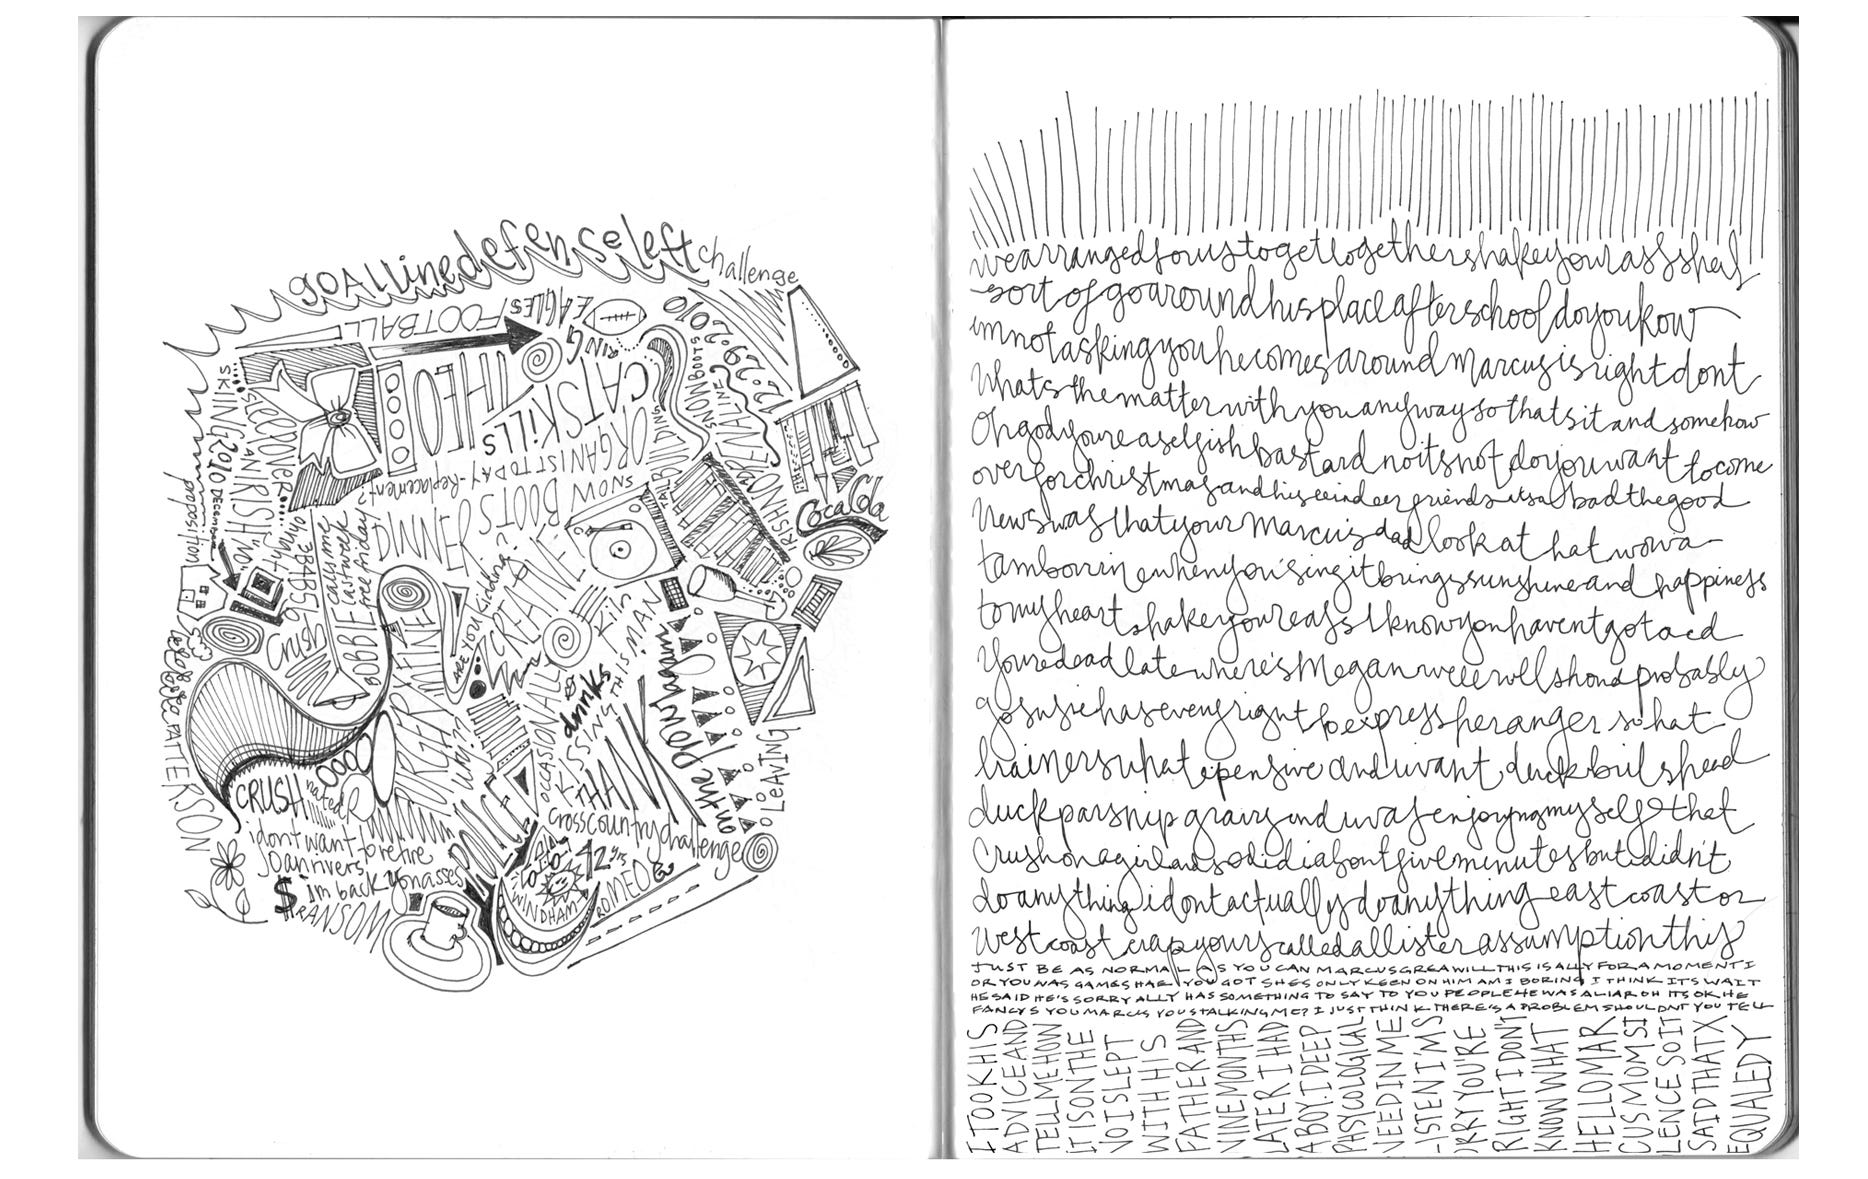 goal line defense left challenge
FOOTBALL
EAGLES
RING
2010
12.29.2010
SNOW BOOTS
SKIING 2010 DECEMBER
SLEEPOVER
AN IRISH
THEO
LEO
CATSKILLS
ORGANIST TODAY - Replacement?
ORGANIST
SNOW BOOTS
DINNER
TAILBUILDING
IRISH NORE
Coca Cola
deposition
3 BABIES
BOBBIE calls me last week free friday?
Crush
ARE YOU kidding?
CREATIVE
Kiln
KISSING THIS MAN.
drinks
OCCASIONALLY
THANK
on the
LEAVING
PATTERSON
CRUSH
POLICE
crosscountrychallenge
i dont want to retire
Joan rivers
$ im back
RANSOM
42 yrs
WINDHAM
ROMEO
wearrangedforustogettogethershakeyourass shes
sort of goaroundhisplaceafterschooldoyoukow
imnotaskingyouhecomesaroundmarcusisrightdont
Whatsthematterwithyouanywaysothatsitandsomehow
Ohgodyoureaselfishbastardnoitsnotdoyouwant tocome
overforchristmasandhisreindeerfriendsitsa badthegood
Newswasthatyourmarcusdad lookat hat wowa
tambourinewhenyousingitbringssunshineand happiness
tomyheart shakeyoureass Iknowyouhaventgotacd
youredeadlatewhere'sMeganwellwellshoud probably
gosusiehaseveryrighttoexpressheranger sohat
trainerswhatepensiveandiwant duckbrilshead
duckparsnipgravyandiwasenjoyingmyself that
Crushonagirlandsodidiaboutfiveminutesbutididn't
doanythingidontactuallydoanythingeastcoastor
Westcoast crapyourscalledallisterassumptionthis
JUST BE AS NORMAL AS YOU CAN MARCUSGREAWILLTHIS IS ALLY FOR A MOMENT I
OR YOU WAS GAMES HAE YOU GOT SHES ONLY KEEN ON HIM AM I BORING I THINK IT'S WAIT
HE SAID HE'S SORRY ALLY HAS SOMETHING TO SAY TO YOU PEOPLE HE WAS A LIAR OH ITS OK HE
FANCYS YOU MARCUS YOUSTALKINGME? I JUST THINK THERE'S A PROBLEM SHOULDNT YOU TELL
I TOOK HIS
ADVICE AND
TELL ME HOW
IT IS ON THE
NO I SLEPT
WITH HIS
FATHER AND
NINE MONTHS
LATER I HAD
A BOY. I DEEP
PHSYCOLOGICAL
NEED IN ME
LISTEN I'M S
ORRY YOU'RE
RIGHT I DON'T
KNOW WHAT
HELLO MAR
CUS MOM SI
LENCE SO IT
SAID THAT X
EQUALED Y